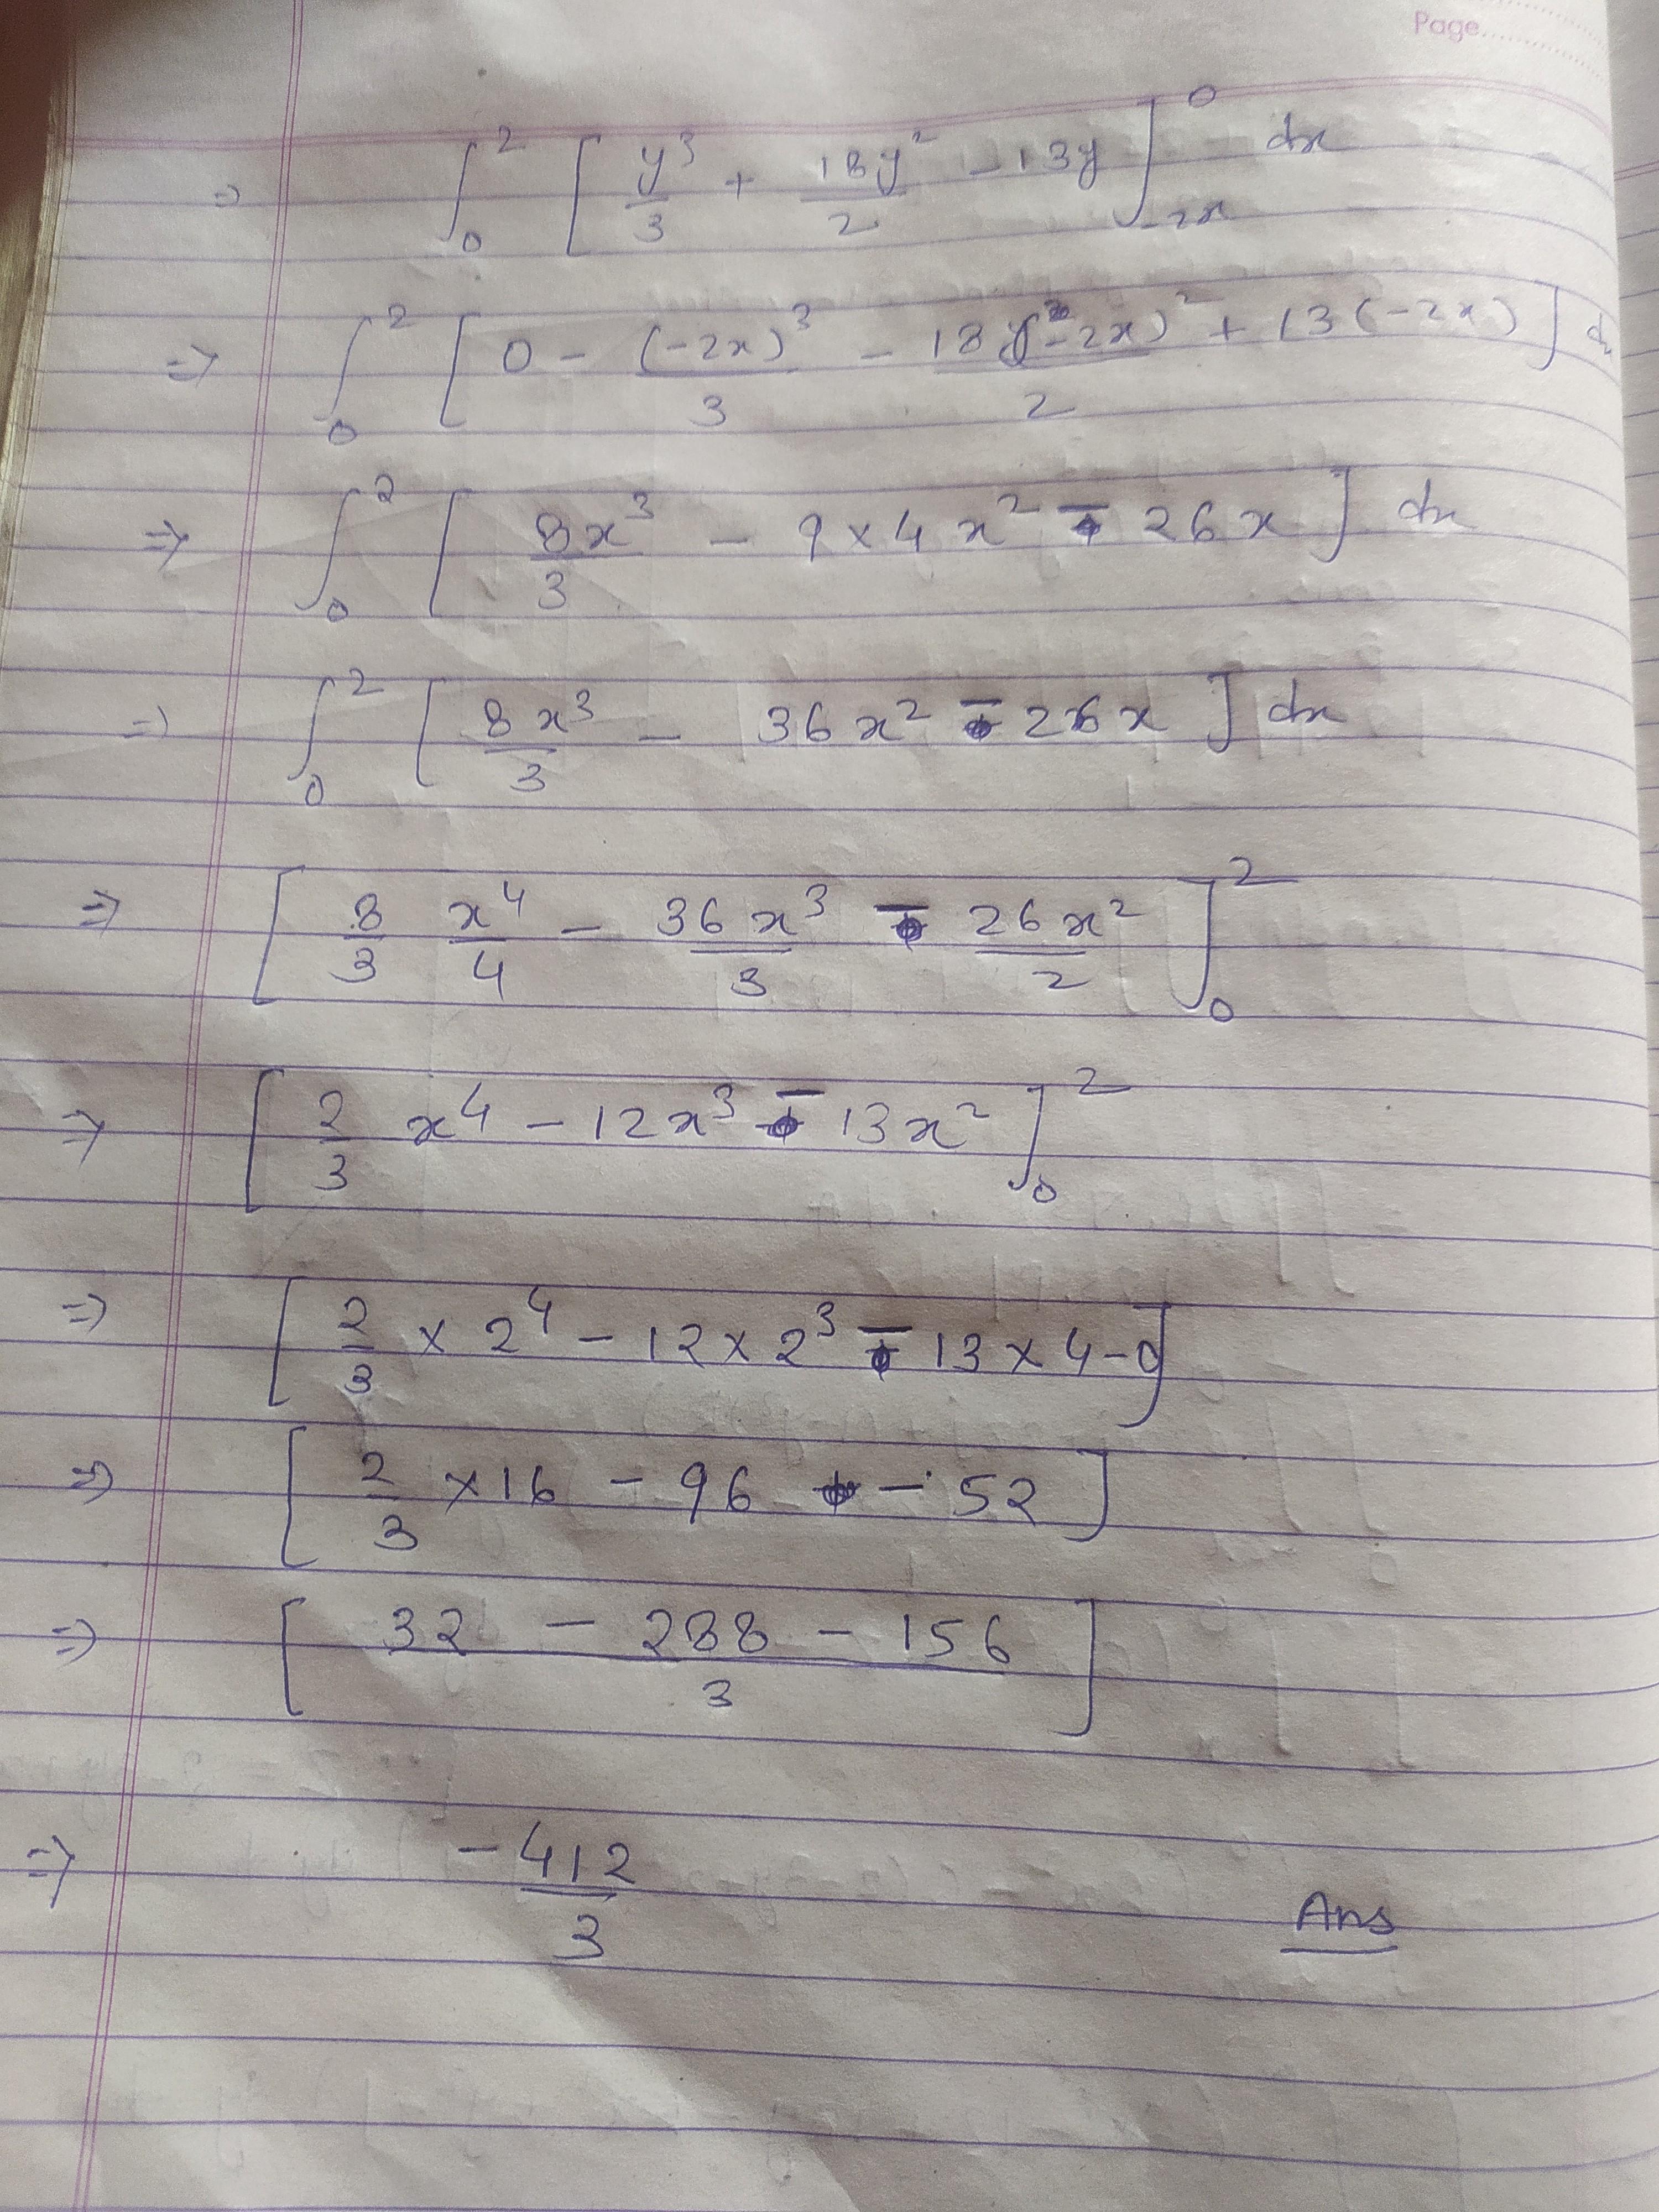 Page
⇒ ∫₀² [ y³/3 + 18y²/2 - 13y ]₋₂ₓ⁰ dx
⇒ ∫₀² [ 0 - (-2x)³/3 - 18(-2x)²/2 + 13(-2x) ] dx
⇒ ∫₀² [ 8x³/3 - 9×4x² - 26x ] dx
⇒ ∫₀² [ 8x³/3 - 36x² - 26x ] dx
⇒ [ 8/3 x⁴/4 - 36x³/3 - 26x²/2 ]₀²
⇒ [ 2/3 x⁴ - 12x³ - 13x² ]₀²
⇒ [ 2/3 × 2⁴ - 12×2³ - 13×4-0 ]
⇒ [ 2/3 ×16 - 96 - 52 ]
⇒ [ (32 - 288 - 156)/3 ]
⇒ -412/3 Ans